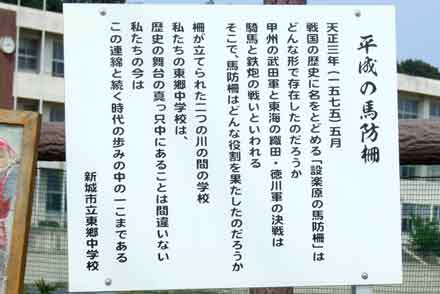 平成の馬防柵
天正三年(一五七五)五月
戦国の歴史に名をとどめる「設楽原の馬防柵」は
どんな形で存在したのだろうか
甲州の武田軍と東海の織田・徳川軍の決戦は
騎馬と鉄炮の戦いといわれる
そこで、馬防柵はどんな役割を果たしたのだろうか
柵が立てられた二つの川の間の学校
私たちの東郷中学校は、
歴史の舞台の真っ只中にあることは間違いない
私たちの今は
この連綿と続く時代の歩みの中の一こまである
新城市立東郷中学校